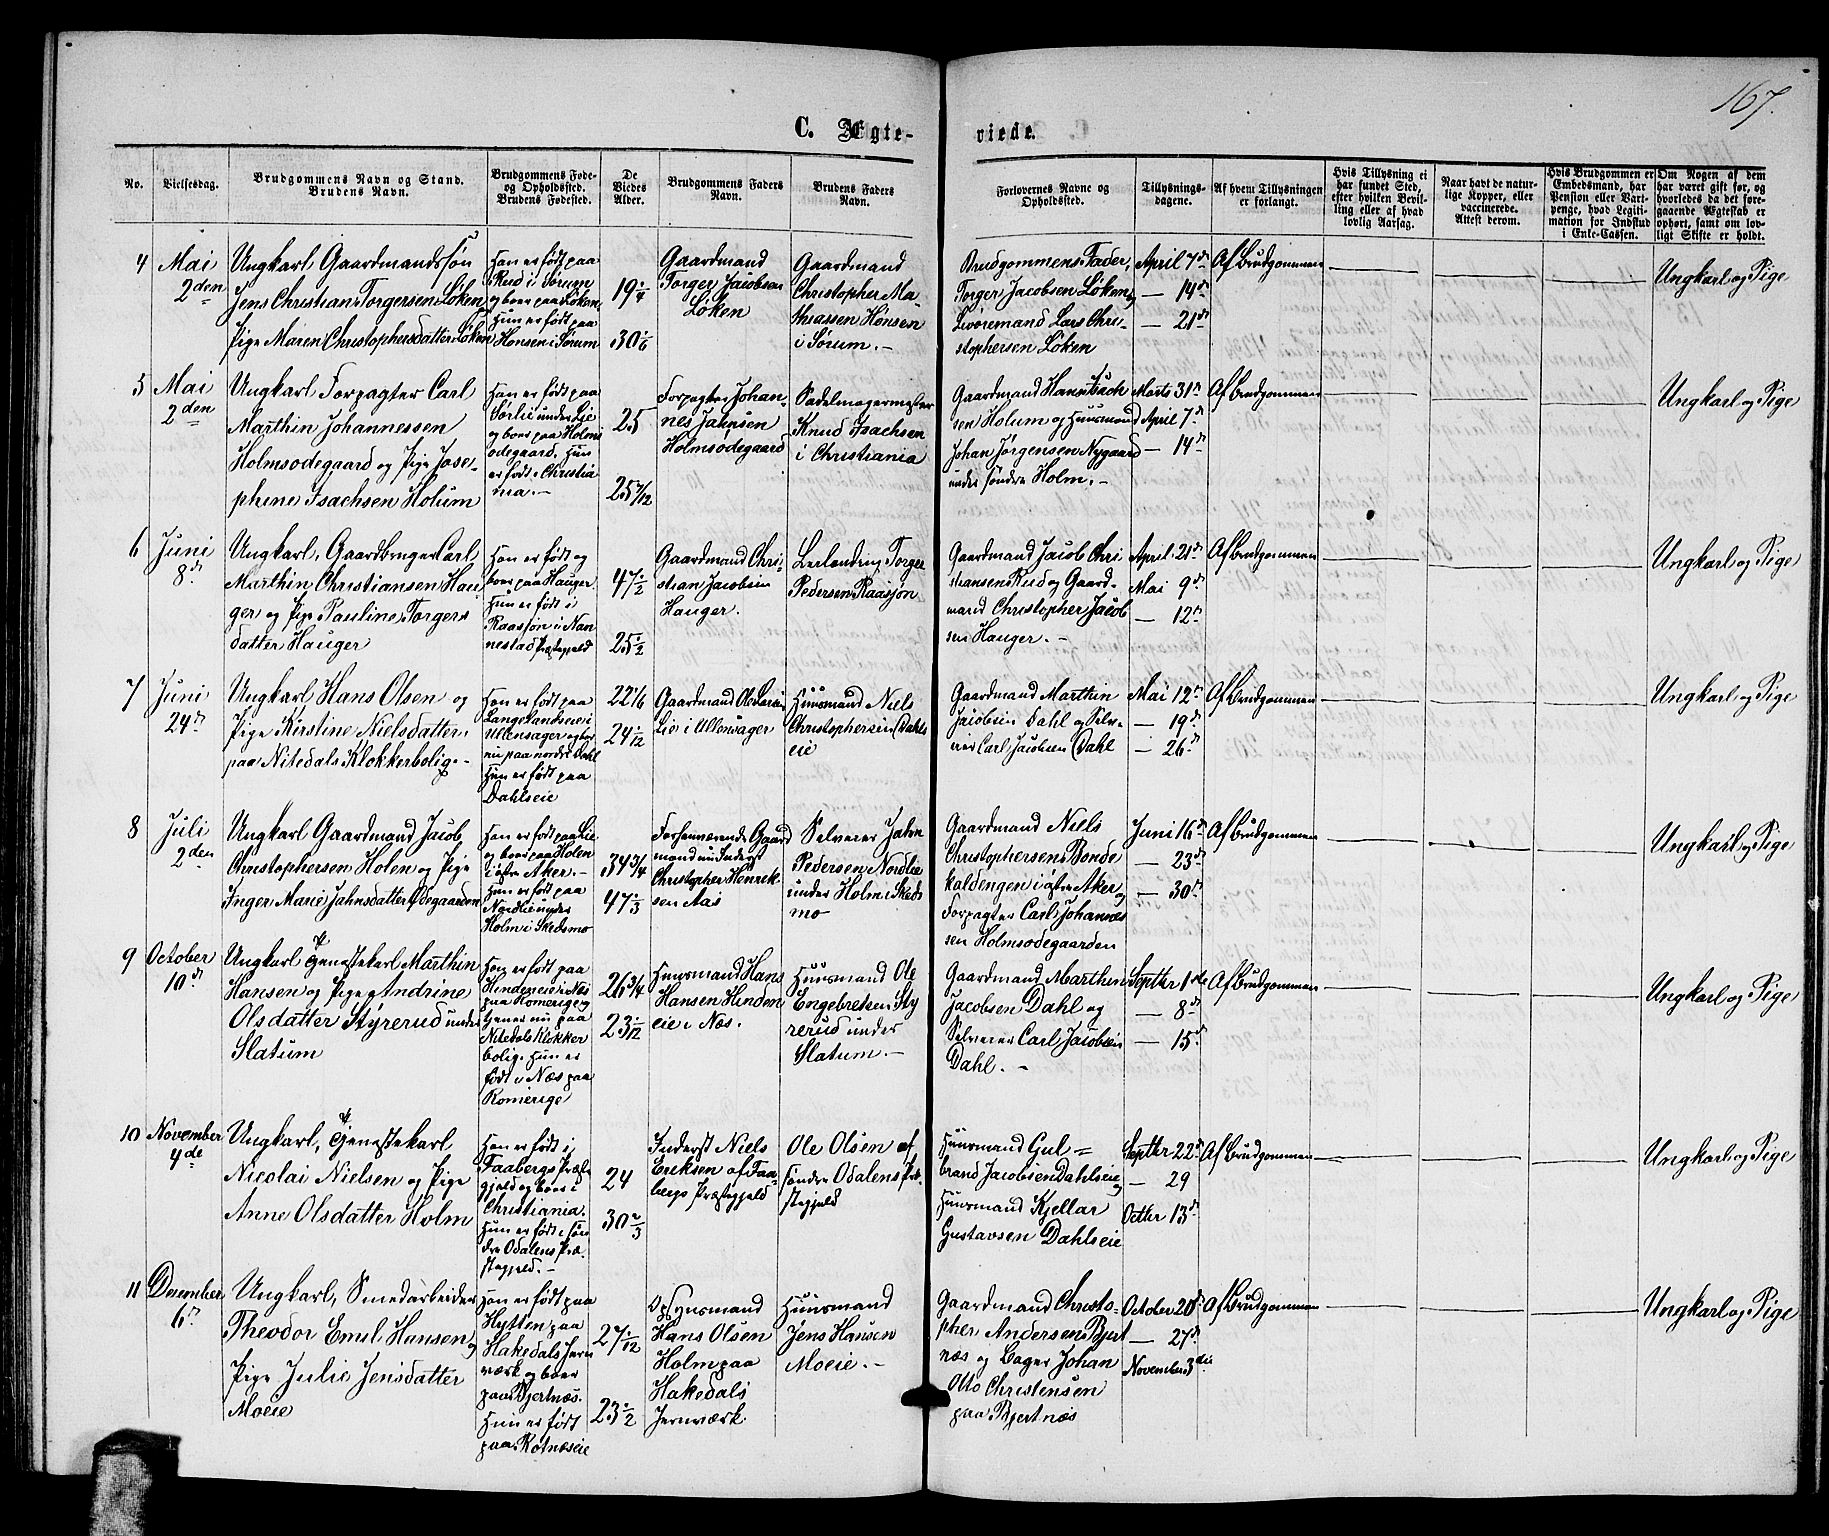 167.
C. Ægte-
viede.
No.
Vielsesdag.
Brudgommens Navn og Stand.
Brudens Navn.
Brudgommens Føde-
og Opholdssted.
Brudens Fødested.
De
Viedes
Alder.
Brudgommens Faders
Navn.
Brudens Faders
Navn.
Forlovernes Navne og
Opholdssted.
Tillysnings-
dagene.
Af hvem Tillysningen
er forlangt.
Hvis Tillysning ei
har fundet Sted,
efter hvilken Bevil-
ling eller af hvad
lovlig Aarsag.
Naar havt de natur-
lige Kopper, eller
vaccinerede.
Attest derom.
Hvis Brudgommen er
Embedsmand, har
Pension eller Vart-
penge, hvad Legiti-
mation for Indskud
i Enke-Cassen.
Om Nogen af dem
har været gift før, og
hvorledes da det fore-
gaaende Ægteskab er
ophørt, samt om lov-
ligt Skifte er holdt.
4
Mai
2den
Ungkarl Gaardmandssøn
Jens Christian Torgersen Løken
Pige Maren Christophersdatter Løken
Han er født paa
Rud i Sørum
og boer paa Løken
Hun er født paa
Hønsen i Sørum
19 1/4
30 1/6
Gaardmand
Torger Jacobsen
Løken
Gaardmand
Christopher Ma-
thiassen Hønsen
i Sørum.-
Brudgommens Fader,
Torger Jacobsen Løken og
Livøremand Lars Chri-
stophersen Løken
April 7de
— 14de
— 21de
Af Brudgommen
Ungkarl og Pige
5
Mai
2den
Ungkarl Forpagter Carl
Marthin Johannessen
Holmsødegaard og Pige Jose-
phine Isachsen Holum
Han er født paa
Sørlie under Lie
og boer paa Holms
ødegaard. Hun
er født i Christia
nia.-
25
25 7/12
Forpagter Johan-
nes Jahnsen
Holmsødegaard
Sadelmagermester
Knud Isachsen
i Christiania
Gaardmand Hans Isach
sen Holum og Huusmand
Johan Jørgensen Nygaard
under søndre Holm.-
Marts 31te
April 7de
— 14de
Af Brudgommen
Ungkarl og Pige
6
Juni
8de
Ungkarl, Gaardbruger Carl
Marthin Christiansen Hau
ger og Pige Pauline Torgers
datter Hauger
Han er født og
boer paa Hauger.
Hun er født i
Raasjøn i Nan
nestad Præstegjeld
47 1/2
25 1/2
Gaardmand Chri-
stian Jacobsen
Hauger.
Leilending Torger
Pedersen Raasjøn
Gaardmand Jacob Chri
stiansen Rud og Gaard-
mand Christopher Jacob
sen Hauger.-
April 21de
Mai 9de
— 12te
Af Brudgommen
Ungkarl og Pige
7
Juni
24de
Ungkarl Hans Olsen og
Pige Kirstine Nielsdatter,
paa Nitedals Klokkerbolig.-
Han er født paa
Langelandseie i
Ullensager og boer
nu paa nordre Dahl
Hun er født paa
Dahlseie
22 1/6
24 1/12
Gaardmand Ole Larsen
Lie i Ullensager
Huusmand Niels
Christophersen Dahls
eie
Gaardmand Marthin
Jacobsen Dahl og Selv-
eier Carl Jacobsen Dahl
Mai 12te
— 19de
— 26de
Af Brudgommen
Ungkarl og Pige
8
Juli
2den
Ungkarl Gaardmand Jacob
Christophersen Holen og Pige
Inger Marie Jahnsdatter Ødegaarden
Han er født paa Lie
og boer paa Holen
i østre Aker.-
Hun er født paa
Nordlie under
Holm i Skedsmo
34 3/4
47 1/3
Forhenværende Gaard
mand nu Inderst
Christopher Henrik-
sen Aas
Selveier Jahn
Pedersen Nordlie
under Holm i Skeds
mo
Gaardmand Niels
Christophersen Bonde
kaldengen i østre Aker og
Forpagter Carl Johannes
sen Holmsødegaarden
Juni 16de
— 23de
— 30te
Af Brudgommen
Ungkarl og Pige
9
October
10de
Ungkarl Tjenestekarl Marthin
Hansen og Pige Andrine
Olsdatter Styrerud under
Slatum
Han er født paa
Hindeneie i Næs
paa Romerige og
tjener nu paa
Nitedals Klokker
bolig. Hun er
født i Næs paa
Romerige
26 3/4
23 1/12
Huusmand Hans
Hansen Hinden
eie i Næs.
Huusmand Ole
Engebretsen Sty
rerud under
Slatum.-
Gaardmand Marthin
Jacobsen Dahl og
Selveier Carl Jacobsen
Dahl.-
Septbr 1ste
— 8de
— 15de
Af Brudgommen
Ungkarl og Pige
10
November
4de
Ungkarl, Tjenestekarl
Nicolai Nielsen og Pige
Anne Olsdatter Holm
Han er født i
Faabergs Præste
gjeld og boer i
Christiania.
Hun er født i søn
dre Odalens Præ-
stegjeld.-
24
30 2/3
Inderst Niels
Eriksen af Faa-
bergs Præstegjeld
Ole Olsen af
søndre Odalens Præ-
stegjeld
Huusmand Gul=
brand Jacobsen Dahlseie og
Huusmand Kjellar
Gustavsen Dahlseie
Septbr 22de
— 29
Octbr 13de
Af Brudgommen
Ungkarl og Pige
11
December
6te
Ungkarl, Smedarbeider
Theodor Emil Hansen og
Pige Julie Jensdatter
Moeie
Han er født paa
Hytten paa
Hakedals Jern
værk og boer
paa Bjertnæs.
Hun er født
paa Rotnæseie
27 1/12
23 1/2
Opsynsmand
Hans Olsen
Holm paa
Hakedals
Jernværk
Huusmand
Jens Hansen
Moeie.-
Gaardmand Christo-
pher Andersen Bjert
næs og Bager Johan
Otto Christensen
paa Bjertnæs
October 20de
— 27de
November 3die
Af Brudgommen
Ungkarl og Pige